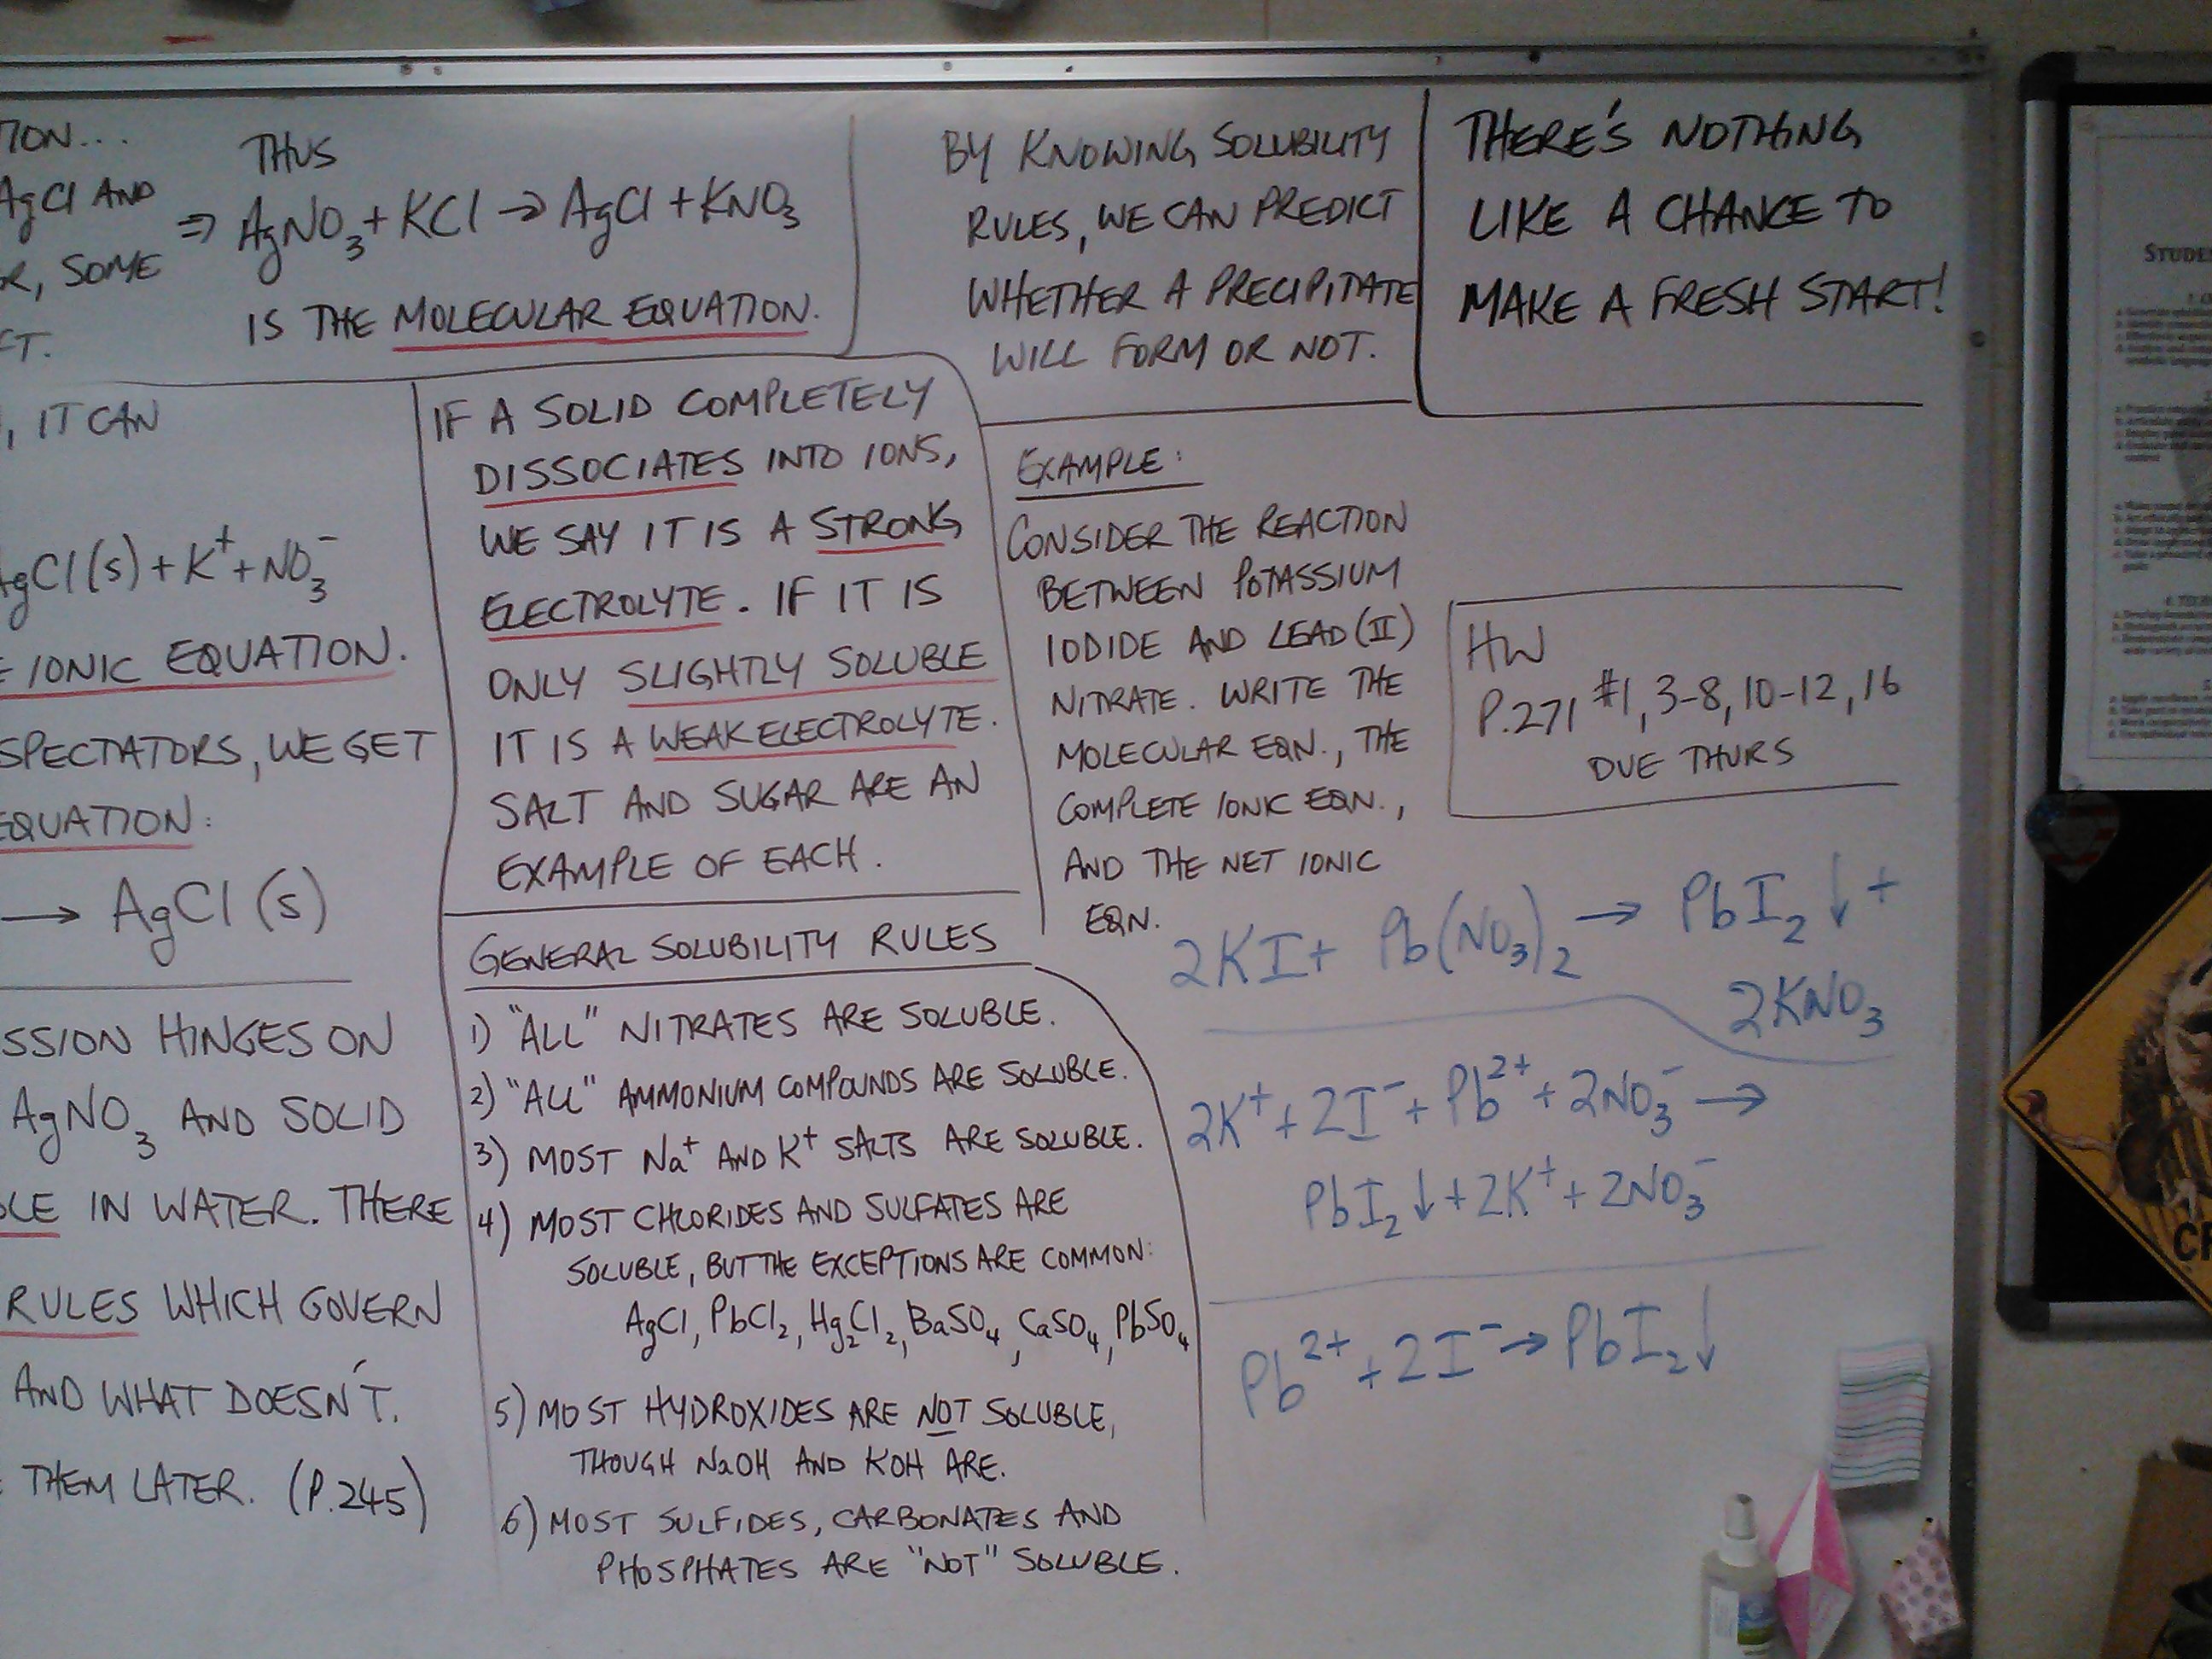 TION...
AgCl AND
OR, SOME
CT.
THUS
⇒ AgNO₃ + KCl → AgCl + KNO₃
IS THE MOLECULAR EQUATION.
BY KNOWING SOLUBILITY
RULES, WE CAN PREDICT
WHETHER A PRECIPITATE
WILL FORM OR NOT.
THERE'S NOTHING
LIKE A CHANCE TO
MAKE A FRESH START!
, IT CAN
AgCl (s) + K⁺ + NO₃⁻
E IONIC EQUATION.
SPECTATORS, WE GET
EQUATION:
→ AgCl (s)
SSION HINGES ON
AgNO₃ AND SOLID
BLE IN WATER. THERE
RULES WHICH GOVERN
AND WHAT DOESN'T.
THEM LATER. (P.245)
IF A SOLID COMPLETELY
DISSOCIATES INTO IONS,
WE SAY IT IS A STRONG
ELECTROLYTE. IF IT IS
ONLY SLIGHTLY SOLUBLE
IT IS A WEAK ELECTROLYTE.
SALT AND SUGAR ARE AN
EXAMPLE OF EACH.
GENERAL SOLUBILITY RULES
1) "ALL" NITRATES ARE SOLUBLE.
2) "ALL" AMMONIUM COMPOUNDS ARE SOLUBLE.
3) MOST Na⁺ AND K⁺ SALTS ARE SOLUBLE.
4) MOST CHLORIDES AND SULFATES ARE
SOLUBLE, BUT THE EXCEPTIONS ARE COMMON:
AgCl, PbCl₂, Hg₂Cl₂, BaSO₄, CaSO₄, PbSO₄
5) MOST HYDROXIDES ARE NOT SOLUBLE,
THOUGH NaOH AND KOH ARE.
6) MOST SULFIDES, CARBONATES AND
PHOSPHATES ARE "NOT" SOLUBLE.
EXAMPLE:
CONSIDER THE REACTION
BETWEEN POTASSIUM
IODIDE AND LEAD (II)
NITRATE. WRITE THE
MOLECULAR EQN., THE
COMPLETE IONIC EQN.,
AND THE NET IONIC
EQN.
HW
P.271 #1, 3-8, 10-12, 16
DUE THURS
2KI + Pb(NO₃)₂ → PbI₂↓ +
2KNO₃
2K⁺ + 2I⁻ + Pb²⁺ + 2NO₃⁻ →
PbI₂↓ + 2K⁺ + 2NO₃⁻
Pb²⁺ + 2I⁻ → PbI₂↓
STUDE